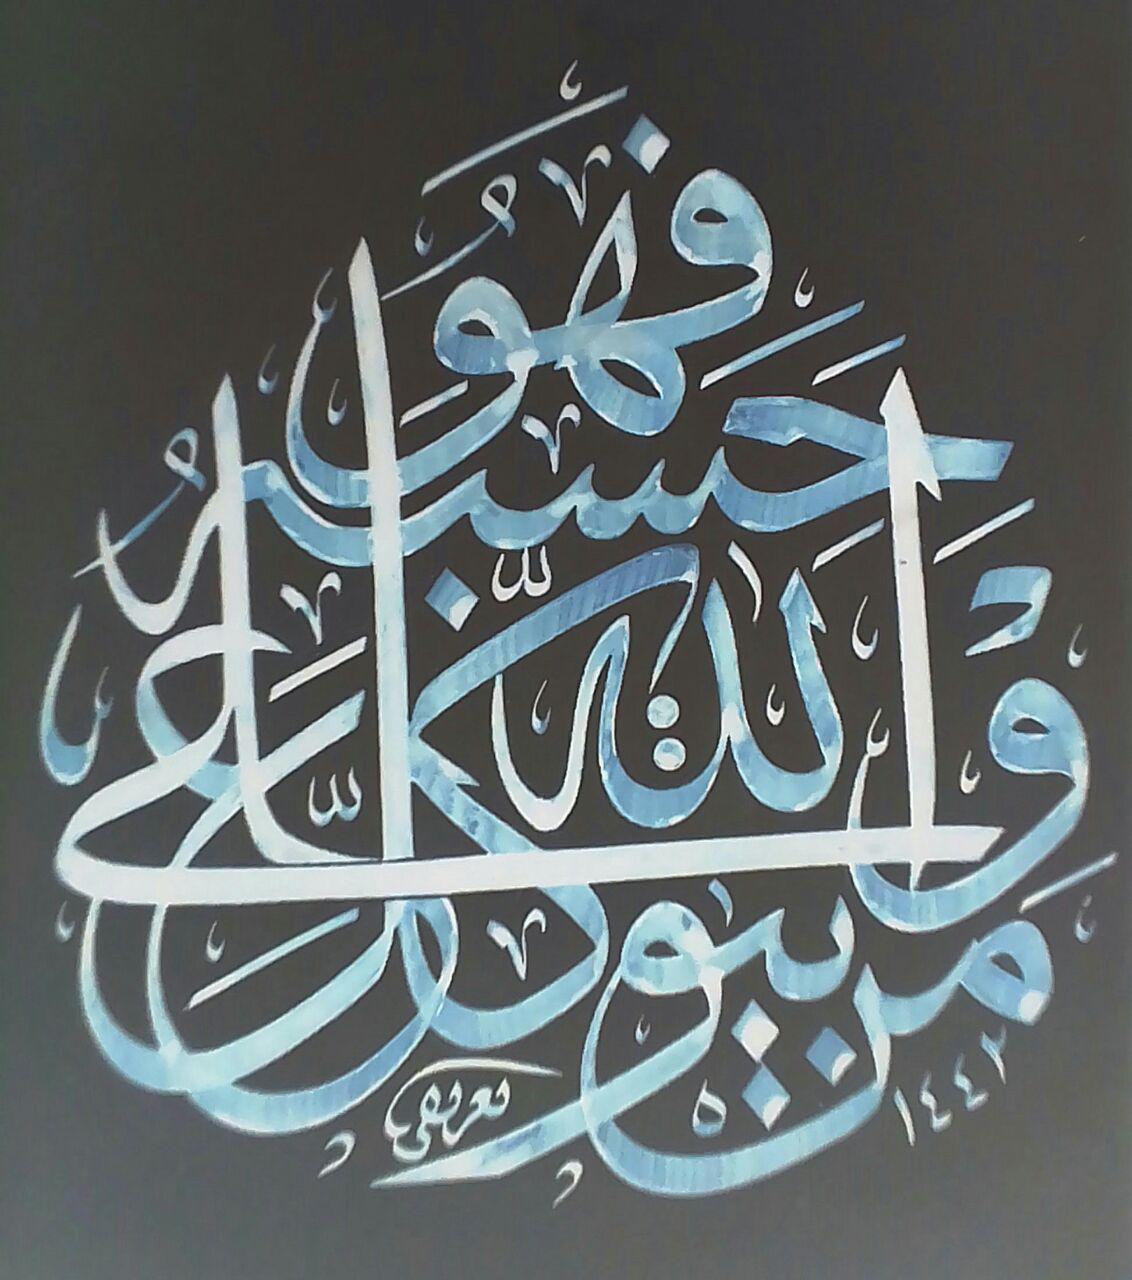 وَمَن يَتَوَكَّلْ عَلَى اللَّهِ فَهُوَ حَسْبُهُ
١٤٤٢